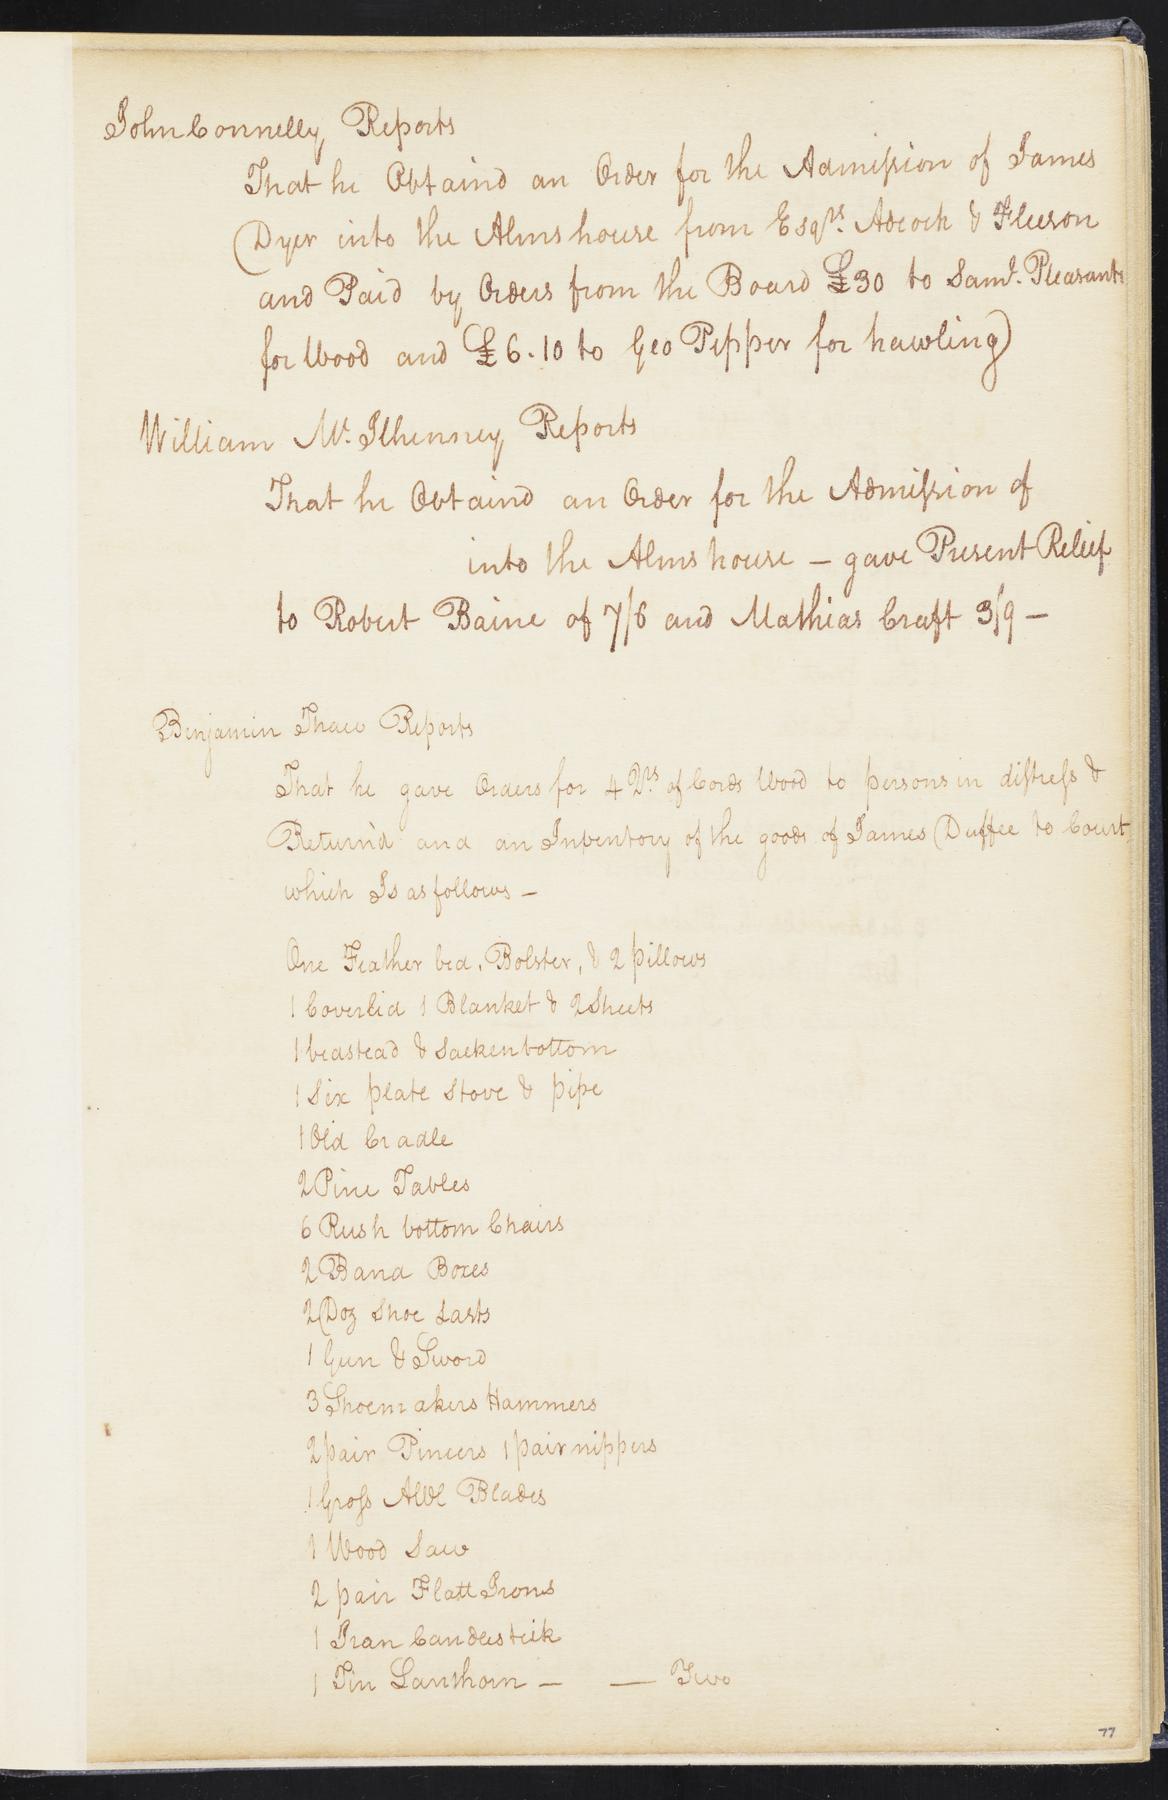 John Connelly Reports
That he Obtaind an Order for the Admission of James
Dyer into the Almshouse from Esqrs. Adcock & Fleeson
and Paid by Orders from the Board £30 to Saml. Pleasants
for Wood and £6.10 to Geo Pepper for hawling
William Mc. Ilhenney Reports
That he Obtaind an Order for the Admission of
into the Almshouse – gave Present Relief
to Robert Baine of 7/6 and Mathias Craft 3/9 –
Benjamin Thaw Reports
That he gave Orders for 4 Qrs. of Cords Wood to persons in distress &
Return'd and an Inventory of the goods of James Duffee to Court
which Is as follows –
One Feather bed, Bolster, & 2 pillows
1 Coverlid 1 Blanket & 2 Sheets
1 beadstead & Sacken bottom
1 Six plate Stove & pipe
1 Old Cradle
2 Pine Tables
6 Rush bottom Chairs
2 Band Boxes
2 Doz Shoe Lasts
1 Gun & Sword
3 Shoemakers Hammers
2 pair Pincers 1 pair nippers
1 Gross Awl Blades
1 Wood Saw
2 pair Flatt Irons
1 Iran Candlestick
1 Tin Lanthorn – — Two
77